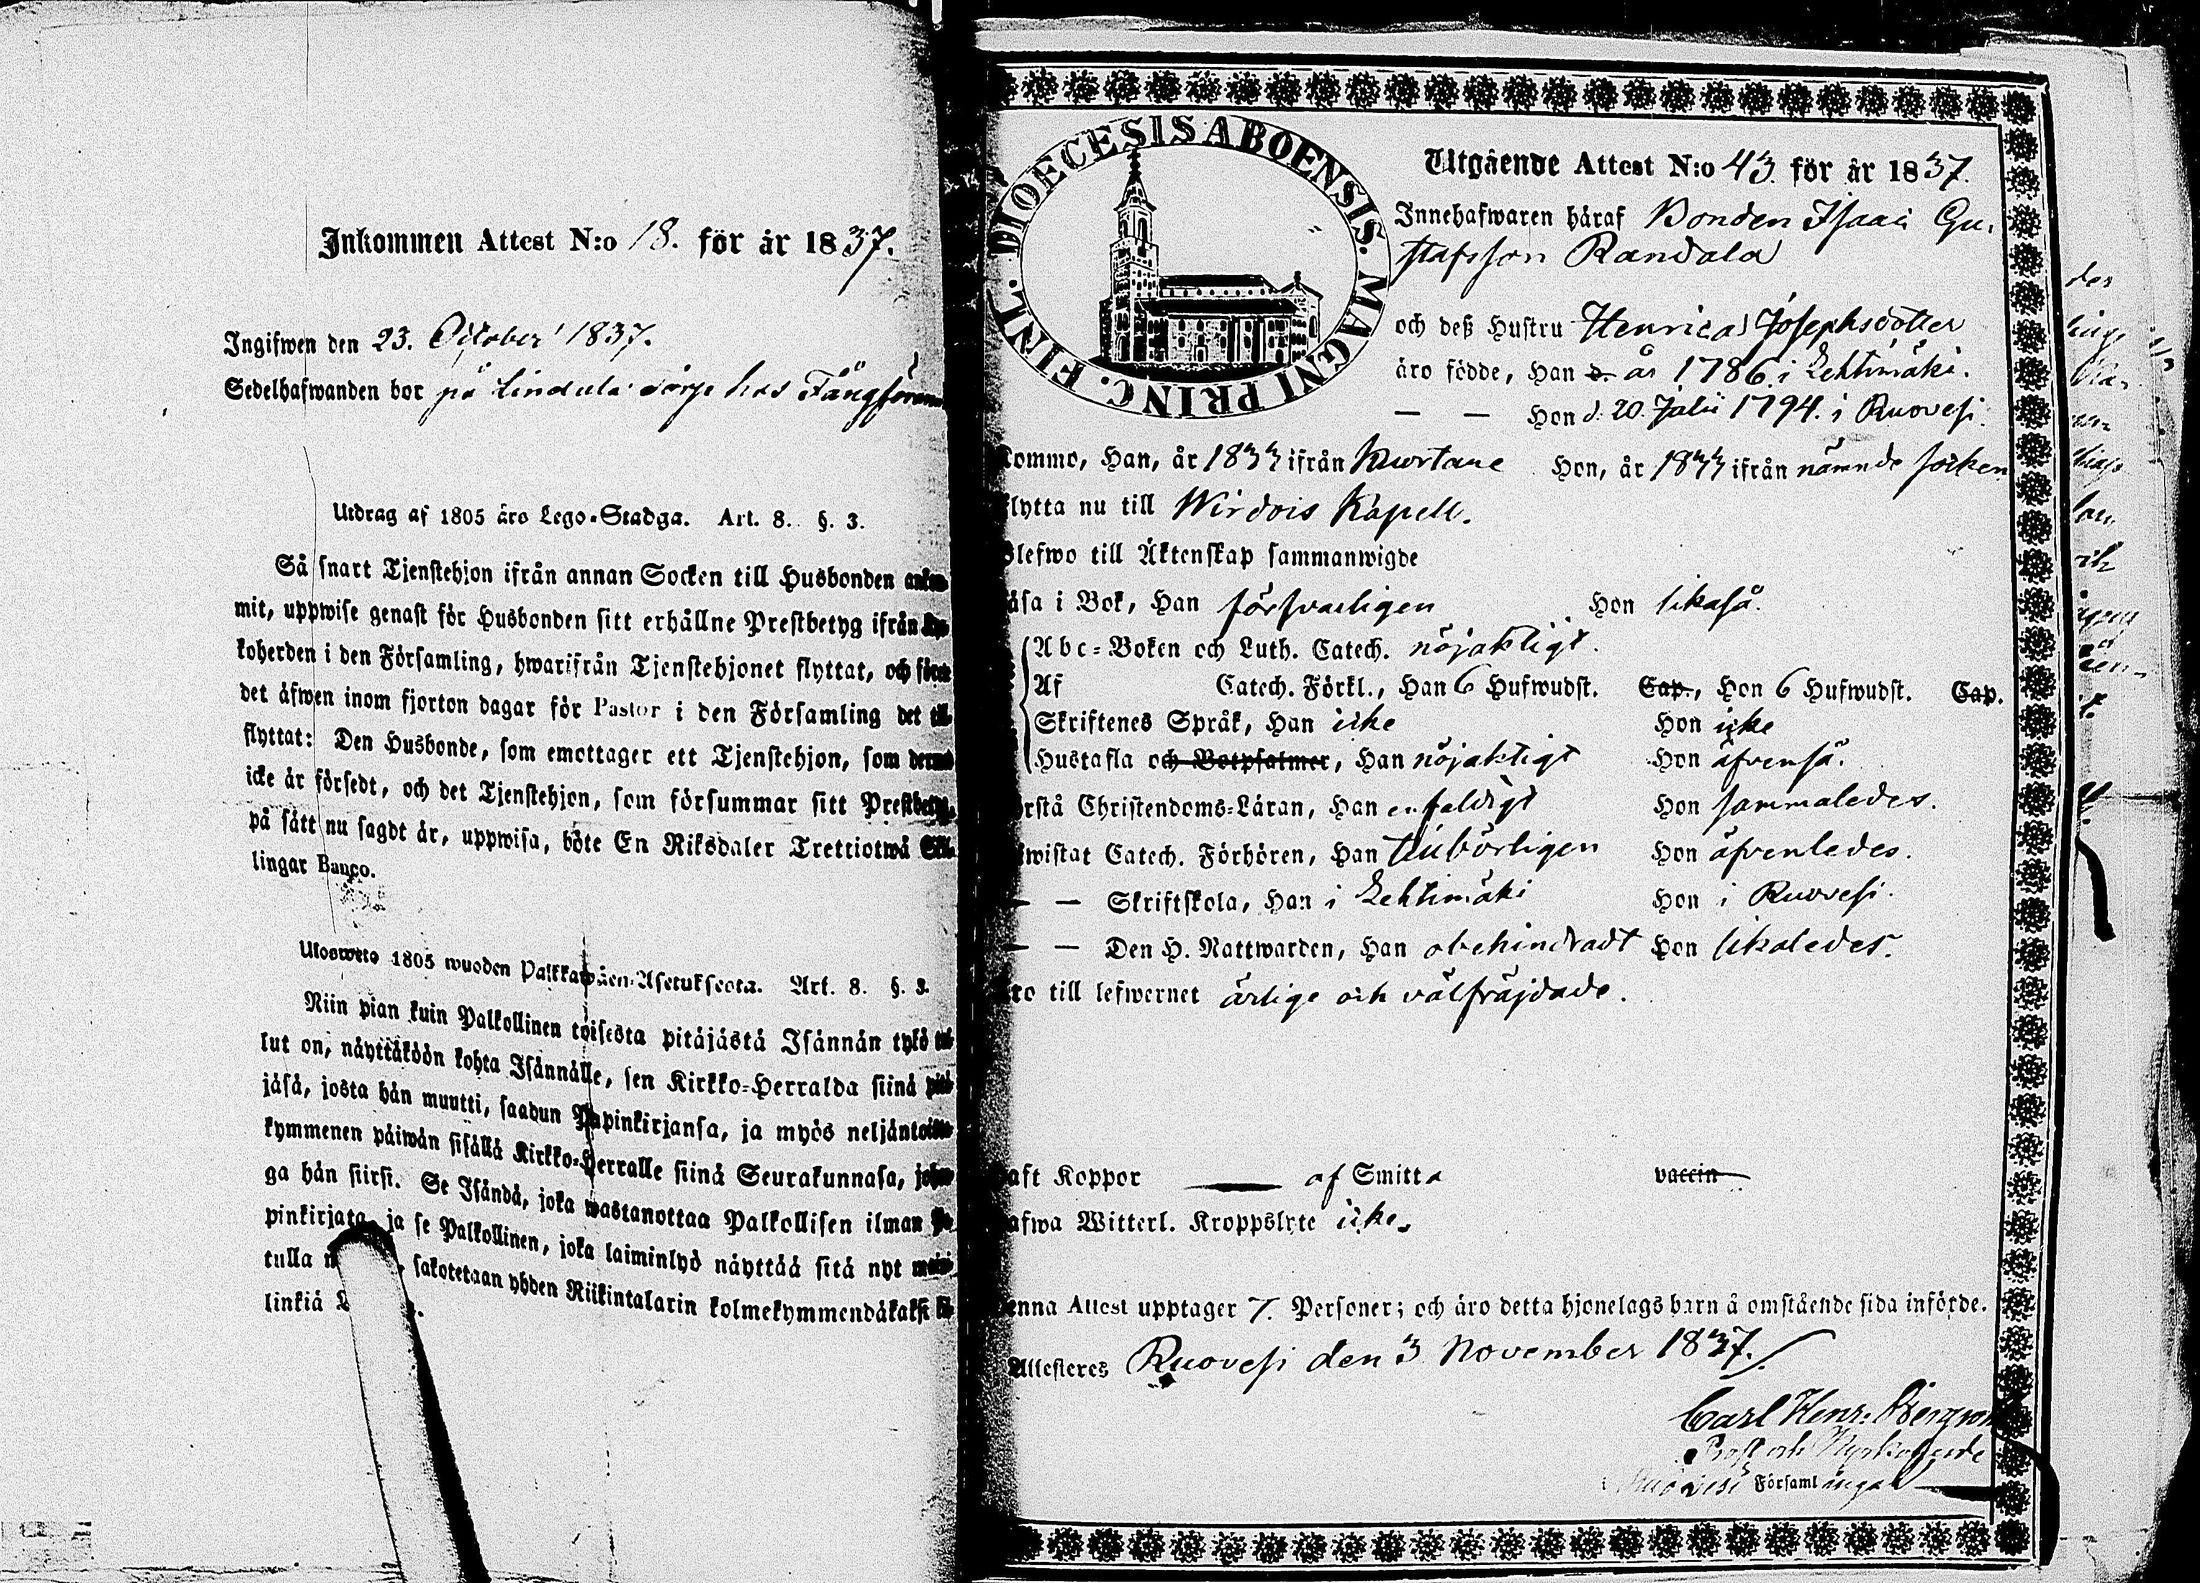 Inkommen Attest N:o 18. för år 1837.
Ingifwen den 23. October 1837.
Sedelhafwanden bor på Lindula torp hos
Utdrag af 1805 års Lego-Stadga. Art. 8. §. 3.
Så snart Tjenstehjon ifrån annan Socken till Husbonden
mit, uppwise genast för Husbonden sitt erhållne Prestbetyg ifrån
koherden i den Församling, hwarifrån Tjenstehjonet flyttat, och
det äfwen inom fjorton dagar för Pastor i den Församling det
flyttat: Den Husbonde, som emottager ett Tjenstehjon, som
icke är försedt, och det Tjenstehjon, som försummar sitt
på sätt nu sagdt är, uppwisa, böte En Riksdaler Trettiotwå
lingar Banco.
Ulosweto 1805 wuoden Palkkawäen-Asetuksesta. Art. 8. §. 3.
Niin pian kuin Palkollinen toisesta pitäjästä Isännän tykö
lut on, näyttäköön kohta Isännälle, sen Kirkko-Herralda siinä
jäsä, josta hän muutti, saadun Papinkirjansa, ja myös
kymmenen päiwän sisällä Kirkko-Herralle siinä Seurakunnasa,
ga hän siirsi. Se Isändä, joka wastanottaa Palkollisen ilman
pinkirjata, ja se Palkollinen, joka laiminlyö näyttää sitä nyt
tulla sakotetaan yhden Riikintalarin kolmekymmendäkaksi
linkiä
DIOECESIS ABOENSIS. MAGNI PRINC. FINL.
Utgående Attest N:o 43. för år 1837.
Innehafwaren häraf Bonden Isaac Gu-
stafsson Randala
och deß Hustru Henrica Josephsdotter
äro födde, Han d. år 1786 i Lehtimäki.
— — Hon d. 20. Julii 1794. i Ruovesi.
kommo, Han, år 1833 ifrån Kuortane Hon, år 1833 ifrån nämnde socken
flytta nu till Wirdois Kapell.
Blefwo till Äktenskap sammanwigde
läsa i Bok, Han försvarligen Hon likaså.
Abc-Boken och Luth. Catech. nöjaktigt.
Af Catech. Förkl., Han 6 Hufwudst. Cap., Hon 6 Hufwudst. Cap.
Skriftenes Språk, Han icke Hon icke
Hustafla och Botpsalmer, Han nöjaktigt Hon äfvenså.
förstå Christendoms-Läran, Han enfaldigt Hon sammaledes.
bewistat Catech. Förhören, Han tillbörligen Hon äfvenledes.
— — Skriftskola, Han i Lehtimäki Hon i Ruovesi.
— — Den H. Nattwarden, Han obehindradt Hon likaledes.
äro till lefwernet ärlige och välfräjdade.
haft Koppor — af Smitta vaccin
hafwa Witterl. Kroppslyte icke.
Denna Attest upptager 7. Personer; och äro detta hjonelags barn å omstående sida införde.
Attesteres Ruovesi den 3 November 1837.
Carl Henr. Bergroth
Prost och Kyrkoherde
Ruovesi Församlingar